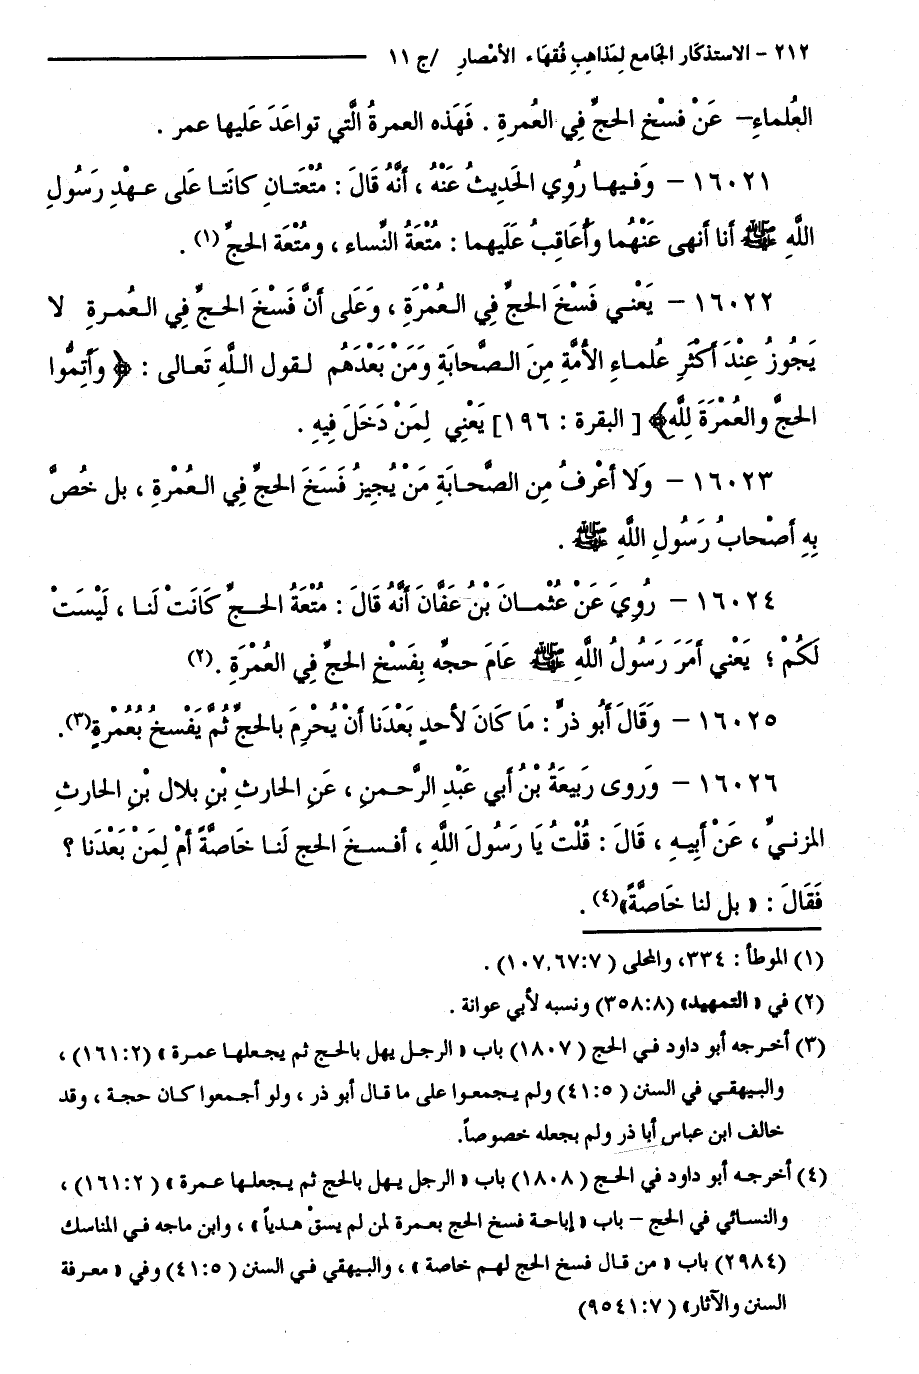 ٢١٢ – الاستذكار الجَامع لِمَذاهِبِ فُقهَاء الأمْصارِ /ج ١١
العُلماءِ– عَنْ فَسْخِ الحجِّ فِي العُمرةِ . فَهَذه العمرةُ الَّتي تواعَدَ عَليها عمر .
١٦٠٢١ – وَفيهـا رُوِي الحَديثُ عَنْهُ ، أنَّهُ قَالَ : مُتْعَتـانِ كانَتـا عَلى عهْدِ رَسُولِ
اللَّهِ ﷺ أنا أنهى عَنْهُما وأُعَاقِبُ عَلَيهما : مُتْعَةُ النِّساء ، ومُتْعَة الحجِّ (١) .
١٦٠٢٢ – يَعْنـي فَسْخَ الحجِّ فِي العُمْرَةِ ، وَعَلى أنَّ فَسْخَ الحـجِّ فِي العُمـرةِ لا
يَجُوزُ عِنْدَ أكْثَرِ عُلمـاءِ الأمَّةِ مِنَ الـصَّحابَةِ وَمَنْ بَعْدَهُم لـقول اللَّهِ تَعـالى : ﴿ وأَتِمُّوا
الحجَّ والعُمْرَةَ لِلَّهِ﴾ [ البقرة : ١٩٦] يَعْنِي لِمَنْ دَخَلَ فِيهِ .
١٦٠٢٣ – وَلَا أعْرفُ مِن الصَّحـابَةِ مَنْ يُجِيزُ فَسَخَ الحجِّ فِي العُمْرةِ ، بل خُصَّ
بِهِ أصْحابُ رَسُولِ اللَّهِ ﷺ .
١٦٠٢٤ – رُوِيَ عَنْ عُثْمـانَ بْنُ عفَّانَ أنَّهُ قَالَ : مُتْعَةُ الحـجِّ كَانَتْ لَنـا ، لَيْسَتْ
لَكُمْ ؛ يَعْني أمَرَ رَسُولُ اللَّهِ ﷺ عَامَ حجِّه بِفَسْخِ الحجِّ فِي العُمْرَةِ .(٢)
١٦٠٢٥ – وَقَالَ أبُو ذرٍّ : مَا كَانَ لأحدٍ بَعْدَنا أنْ يُحْرِمَ بالحجِّ ثُمَّ يَفْسخُ بُعُمْرةٍ(٣).
١٦٠٢٦ – وَروى رَبيعَةُ بْنُ أبي عَبْدِ الرَّحـمنِ ، عَنِ الحَارثِ بْنِ بلال بْنِ الحَارثِ
المزنـيِّ ، عَنْ أبِيـهِ ، قَالَ : قُلْتُ يَا رَسُولَ اللَّهِ ، أفسـخَ الحج لَنـا خَاصَّةً أمْ لِمَنْ بَعْدَنا ؟
فَقَالَ : « بل لنا خَاصَّةً»(٤) .
(١) الموطأ : ٣٣٤، والمحلى ( ٧:٦٧,١٠٧) .
(٢) في « التمهيد» (٨:٣٥٨) ونسبه لأبي عوانة .
(٣) أخرجه أبو داود في الحج (١٨٠٧) باب « الرجـل يهل بالحج ثم يجعلهـا عمرة » (٢:١٦١) ،
والبـيهقـي في السنن (٥:٤١) ولم يـجمعـوا على ما قال أبو ذر ، ولو أجـمعوا كـان حجـة ، وقد
خالف ابن عباس أبا ذر ولم يجعله خصوصاً.
(٤) أخرجـه أبو داود في الحـج (١٨٠٨) باب « الرجل يـهل بالحج ثم يـجعلـها عمـرة » (٢:١٦١) ،
والنسـائي في الحج – باب « إباحة فسخ الحج بعمرة لمن لم يسقْ هـدياً » ، وابن ماجه فـي المناسك
(٢٩٨٤) باب « من قـال فسخ الحج لهـم خاصة » ، والبـيهقي فـي السنن (٥:٤١) وفي « معـرفة
السنن والآثار» (٧:٩٥٤١)